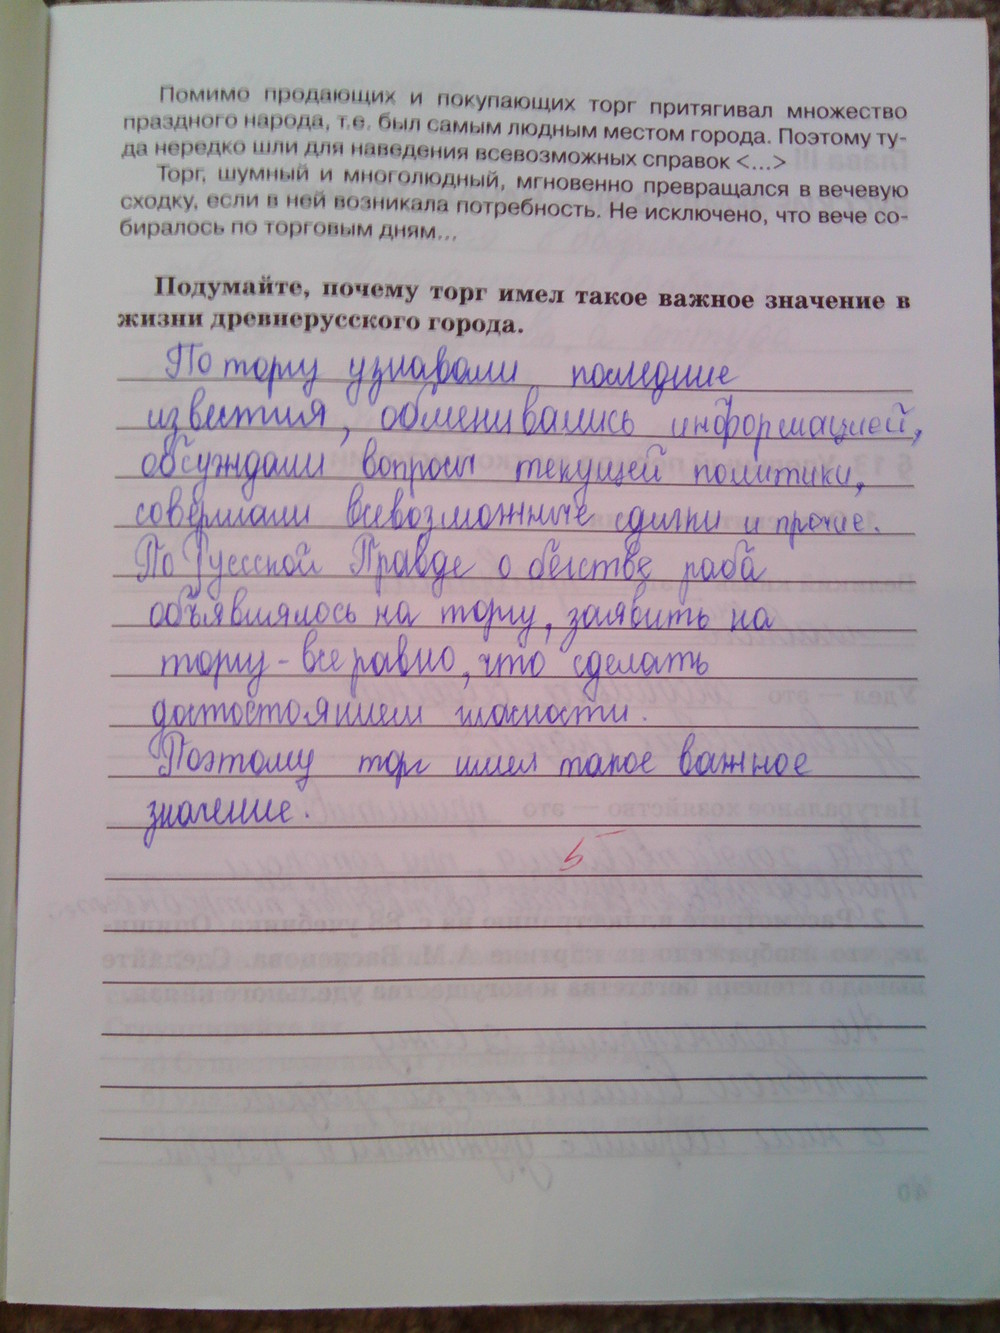 Помимо продающих и покупающих торг притягивал множество
праздного народа, т.е. был самым людным местом города. Поэтому ту-
да нередко шли для наведения всевозможных справок <...>
Торг, шумный и многолюдный, мгновенно превращался в вечевую
сходку, если в ней возникала потребность. Не исключено, что вече со-
биралось по торговым дням...
Подумайте, почему торг имел такое важное значение в
жизни древнерусского города.
По торгу узнавали последние
известия, обменивались информацией,
обсуждали вопросы текущей политики,
совершали всевозможные сделки и прочие.
По Русской Правде о бегстве раба
объявлялось на торгу, заявить на
торгу - все равно, что сделать
достостоянием гласности.
Поэтому торг имел такое важное
значение.
5